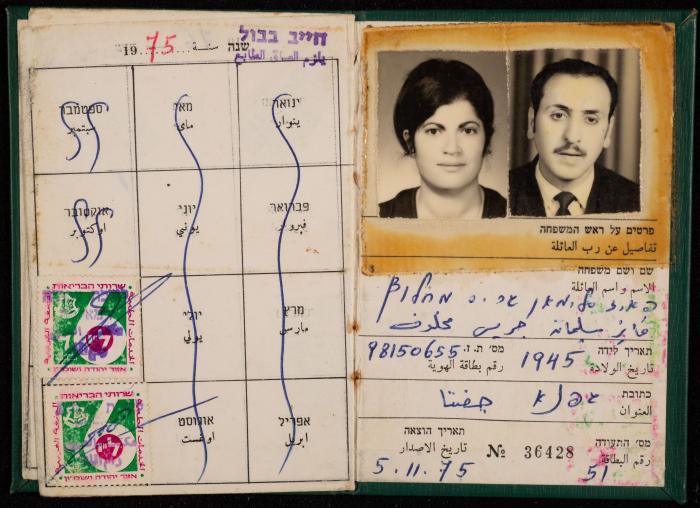 חייב בבול
ملزم الصاق الطابع
שנה سنة 1975
ינואר
ينوار
מאי
ماي
ספטמבר
سبتمبر
פברואר
فبروار
יוני
يوني
אוקטובר
اوكتوبر
מרץ
مارس
יולי
يولي
שרותי הבריאות
אזור יהודה ושומרון
אפריל
ابريل
אוגוסט
اوغست
שרותי הבריאות
אזור יהודה ושומרון
פרטים על ראש המשפחה
تفاصيل عن رب العائلة
שם ושם משפחה
الاسم واسم العائلة
جريس مخلوف
תאריך לידה 1945 מס׳ ת.ז. 98150655
تاريخ الولادة رقم بطاقة الهوية
כתובת ג׳פנא جفنا
العنوان
מס׳ התעודה № 36428 תאריך הוצאה
رقم البطاقة تاريخ الاصدار
51 5.11.75